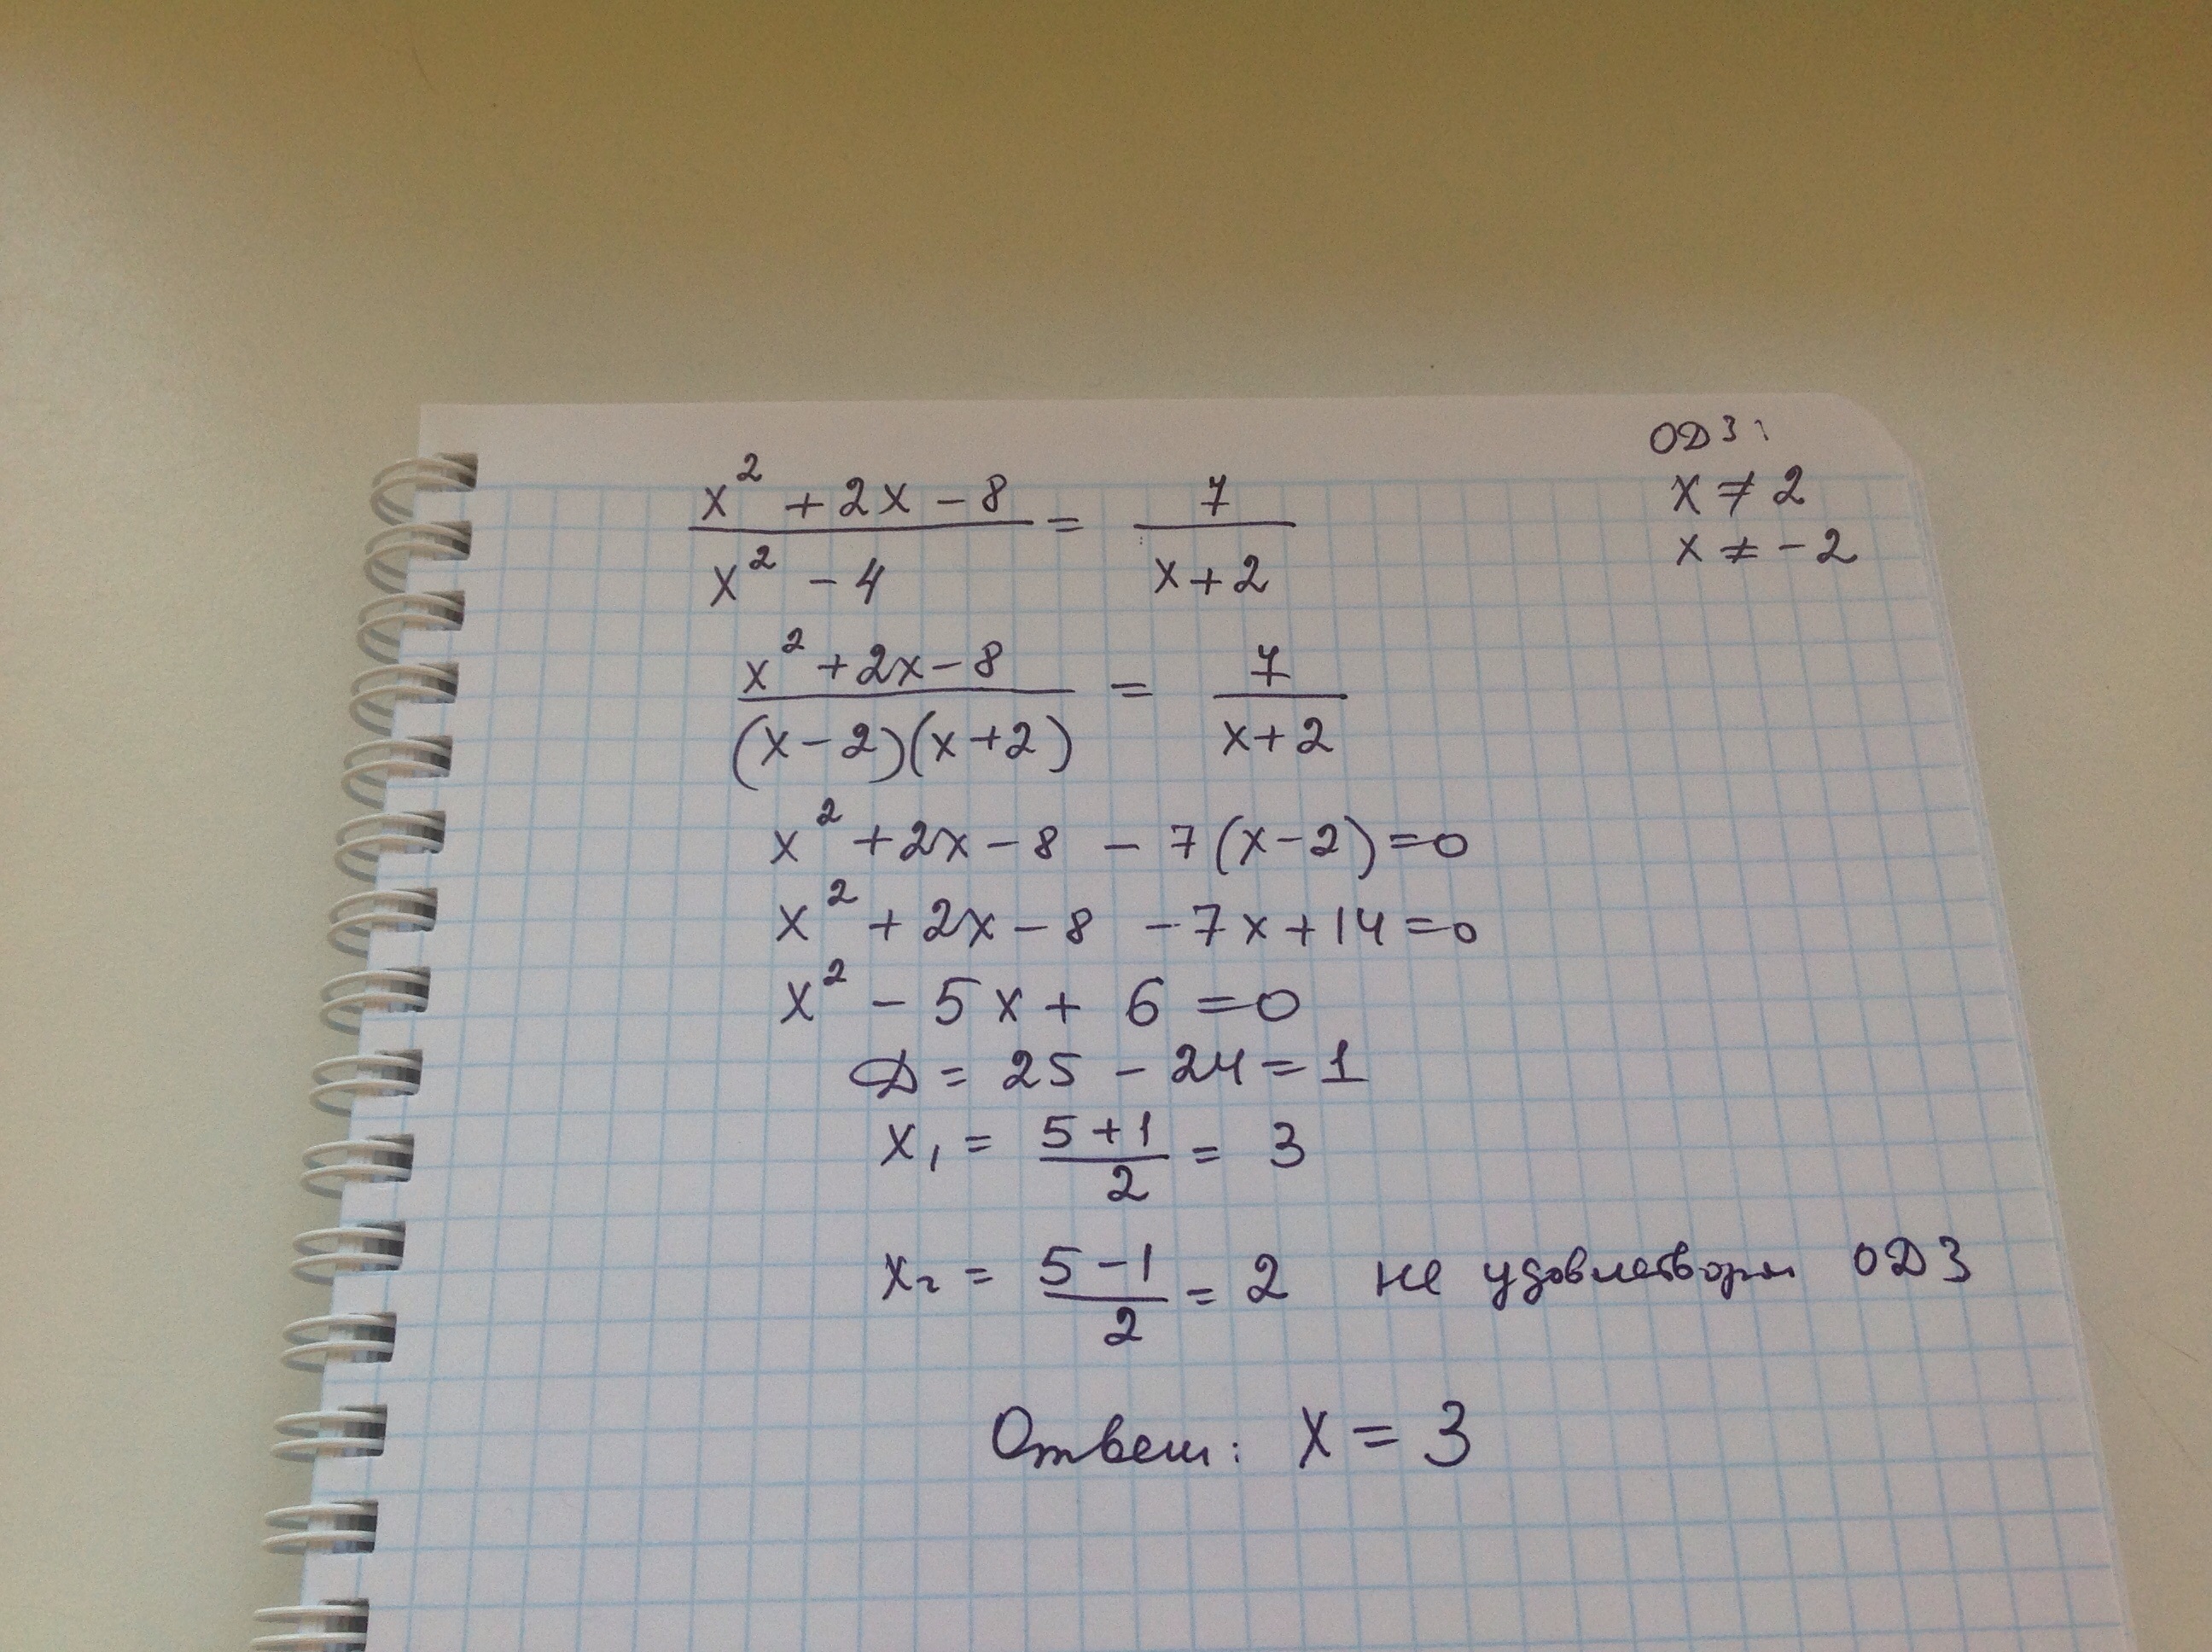 ОДЗ:
x ≠ 2
x ≠ -2
(x² + 2x - 8)/(x² - 4) = 7/(x+2)
(x² + 2x - 8)/((x-2)(x+2)) = 7/(x+2)
x² + 2x - 8 - 7(x-2) = 0
x² + 2x - 8 - 7x + 14 = 0
x² - 5x + 6 = 0
Д = 25 - 24 = 1
x₁ = (5+1)/2 = 3
x₂ = (5-1)/2 = 2 не удовлетворяет ОДЗ
Ответ: x = 3